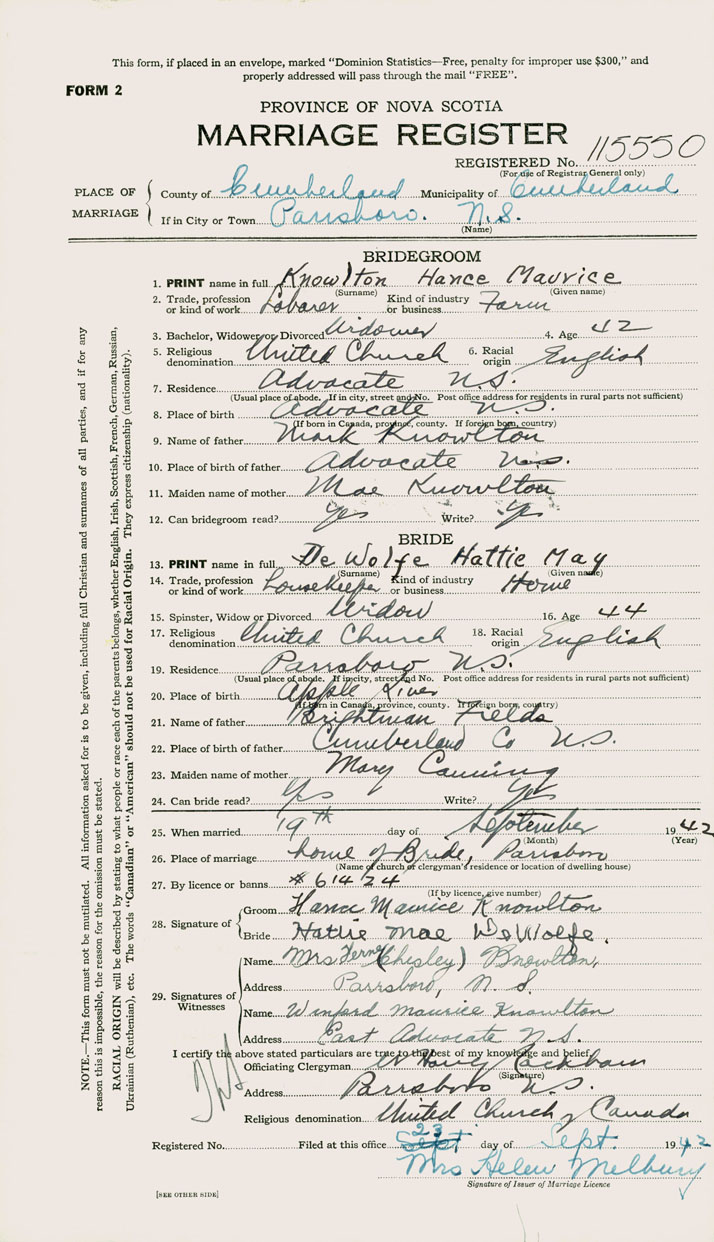 This form, if placed in an envelope, marked "Dominion Statistics—Free, penalty for improper use $300," and
properly addressed will pass through the mail "FREE".
FORM 2
PROVINCE OF NOVA SCOTIA
MARRIAGE REGISTER
REGISTERED No. 115550
(For use of Registrar General only)
PLACE OF MARRIAGE
County of Cumberland Municipality of Cumberland
If in City or Town Parrsboro. N.S.
(Name)
BRIDEGROOM
1. PRINT name in full Knowlton Hance Maurice
(Surname) (Given name)
2. Trade, profession or kind of work Laborer Kind of industry or business Farm
3. Bachelor, Widower or Divorced Widower 4. Age 42
5. Religious denomination United Church 6. Racial origin English
7. Residence Advocate N.S.
(Usual place of abode. If in city, street and No. Post office address for residents in rural parts not sufficient)
8. Place of birth Advocate N.S.
(If born in Canada, province, county. If foreign born, country)
9. Name of father Mark Knowlton
10. Place of birth of father Advocate N.S.
11. Maiden name of mother Mae Knowlton
12. Can bridegroom read? Yes Write? Yes
BRIDE
13. PRINT name in full De Wolfe Hattie May
(Surname) (Given name)
14. Trade, profession or kind of work Housekeeper Kind of industry or business Home
15. Spinster, Widow or Divorced Widow 16. Age 44
17. Religious denomination United Church 18. Racial origin English
19. Residence Parrsboro N.S.
(Usual place of abode. If in city, street and No. Post office address for residents in rural parts not sufficient)
20. Place of birth Apple River
(If born in Canada, province, county. If foreign born, country)
21. Name of father Brightman Fields
22. Place of birth of father Cumberland Co N.S.
23. Maiden name of mother Mary Canning
24. Can bride read? Yes Write? Yes
25. When married 19th day of September 1942
(Month) (Year)
26. Place of marriage home of Bride, Parrsboro
(Name of church or clergyman's residence or location of dwelling house)
27. By licence or banns # 61424
(If by licence, give number)
28. Signature of
Groom Hance Maurice Knowlton
Bride Hattie Mae DeWolfe.
29. Signatures of Witnesses
Name Mrs Fern (Chisley) Knowlton,
Address Parrsboro, N. S.
Name Winford Maurice Knowlton
Address East Advocate N.S.
I certify the above stated particulars are true to the best of my knowledge and belief
Officiating Clergyman W
(Signature)
Address Parrsboro N.S.
Religious denomination United Church of Canada
Registered No. Filed at this office 23 Sept day of Sept. 1942
Mrs Helen Melbury
Signature of Issuer of Marriage Licence
[SEE OTHER SIDE]
NOTE.—This form must not be mutilated. All information asked for is to be given, including full Christian and surnames of all parties, and if for any
reason this is impossible, the reason for the omission must be stated.
RACIAL ORIGIN will be described by stating to what people or race each of the parents belongs, whether English, Irish, Scottish, French, German, Russian,
Ukrainian (Ruthenian), etc. The words "Canadian" or "American" should not be used for Racial Origin. They express citizenship (nationality).